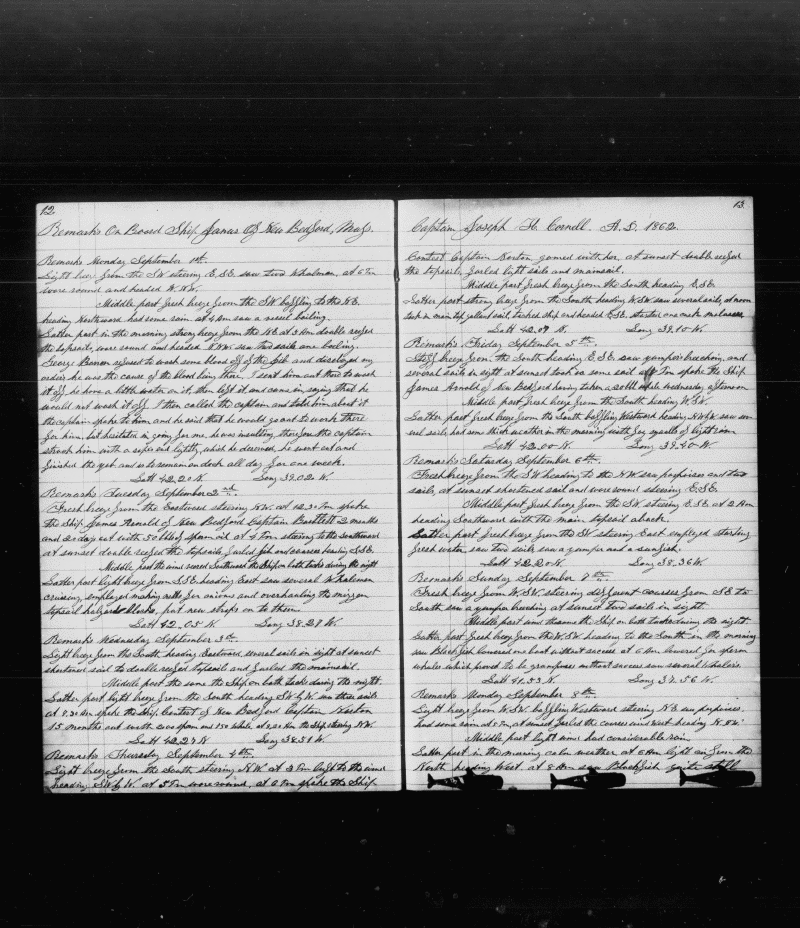 12
Remarks On Board Ship James Of New Bedford, Mas.
Remarks Monday September 1st.
Light breeze from the SW steering E.S.E. saw two Whalemen. at 6 Pm
wore round and headed W.N.W.
Middle part fresh breeze from the SW baffling to the N.E.
heading Northward had some rain. at 4 Am saw a vessel boiling.
Latter part in the morning strong breeze from the NE at 8 Am double reefed
the topsails, wore round and headed saw two sails one boiling.
George refused to wash some blood off of the jib and disobeyed my
orders he was the cause of the blood being there. I sent him out there to wash
it off, he hove a little water on it, then left it and came in, saying that he
would not wash it off. I then called the captain and told him about it
the captain spoke to him and he said that he would go out to work there
for him, but hesitated in going for me, he was insulting, therefore the captain
struck him with a ropes end lightly, which he deserved, he went out and
finished the job and is to remain on deck all day for one week.
Latt 42.20 N. Long 39.02 W.
Remarks Tuesday September 2nd.
Fresh breeze from the Eastward steering N.W. at 12.30 Pm spoke
the Ship James Arnold of New Bedford Captain Bartlett 2 months
and 20 days out with 50 bbls of sperm oil at 4 Pm steering to the Southward
at sunset double reefed the topsails, furled jib and courses heading S.S.E.
Middle part the wind veered Southward the Ship on both tacks during the night
Latter part light breeze from S.S.E. heading East saw several Whalemen
cruising, employed making for and overhauling the mizzen
topsail halyards blocks, put new straps on to them
Latt 42.05 N. Long 38.29 W.
Remarks Wednesday September 3rd.
Light breeze from the South heading Eastward, several sails in sight at sunset
shortened sail to double reefed topsails and furled the mainsail.
Middle part the same the Ship on both tacks during the night.
Latter part light breeze from the South heading SW by W. saw three sails
at 8.30 Am spoke the Ship Contest of New Bedford Captain Norton
15 months out with 200 sperm and 150 whale, at 9.20 Am the Ship steering N.W.
Latt 42.27 N. Long 38.51 W.
Remarks Thursday September 4th.
Light breeze from the South steering N.W. at 3 Pm luffed to the wind
heading SW by W. at 5 Pm wore round, at 6 Pm spoke the Ship
13
Captain Joseph H. Cornell A.D. 1862.
Contest Captain Norton gamed with her, at sunset double reefed
the topsails, furled light sails and mainsail.
Middle part fresh breeze from the South heading E.S.E.
Latter part strong breeze from the South heading W.SW. saw several sails, at noon
took in main top gallant sail tacked ship and headed E.SE. started one cask molasses
Latt 42.07 N. Long 39.10 W.
Remarks Friday September 5th.
Stiff breeze from the South heading E.S.E. saw grampus breeching and
several sails in sight at sunset took in some sail at 7 Pm spoke the Ship
James Arnold of New Bedford having taken a 20 bbl whale Wednesday afternoon
Middle part fresh breeze from the South heading W.S.W.
Latter part fresh breeze from the South baffling Westward heading saw
several sails, had some thick weather in the morning with fog squalls of light rain
Latt 42.00 N. Long 39.40 W.
Remarks Saturday September 6th.
Fresh breeze from the S.W. heading to the N.W. saw porpoises and two
sails, at sunset shortened sail and wore round steering E.S.E.
Middle part fresh breeze from the S.W. steering E.S.E. at 2 Am
heading Southward with the main topsail aback.
Latter part fresh breeze from the SW. steering East employed starting
fresh water saw two sails saw a grampus and a sunfish.
Latt 42.20 N. Long 38.36 W.
Remarks Sunday September 7th.
Fresh breeze from W.S.W. steering different courses from S.E. to
South saw a grampus breeching at sunset two sails in sight.
Middle part wind the same the Ship on both tacks during the night.
Latter part fresh breeze from the W.S.W. heading to the South in the morning
saw Blackfish lowered one boat without success at 6 Am lowered for sperm
whales which proved to be grampuses without success saw several Whalers.
Latt 41.53 N. Long 37.56 W.
Remarks Monday September 8th.
Light breeze from W.S.W. baffling Westward steering N.E. saw porpoises,
had some rain at 5 Pm, at sunset furled the courses wind West heading N.N.W.
Middle part light wind had considerable rain.
Latter part in the morning calm weather at 5 Am light air from the
North heading West. at 8 Am saw Blackfish quite still